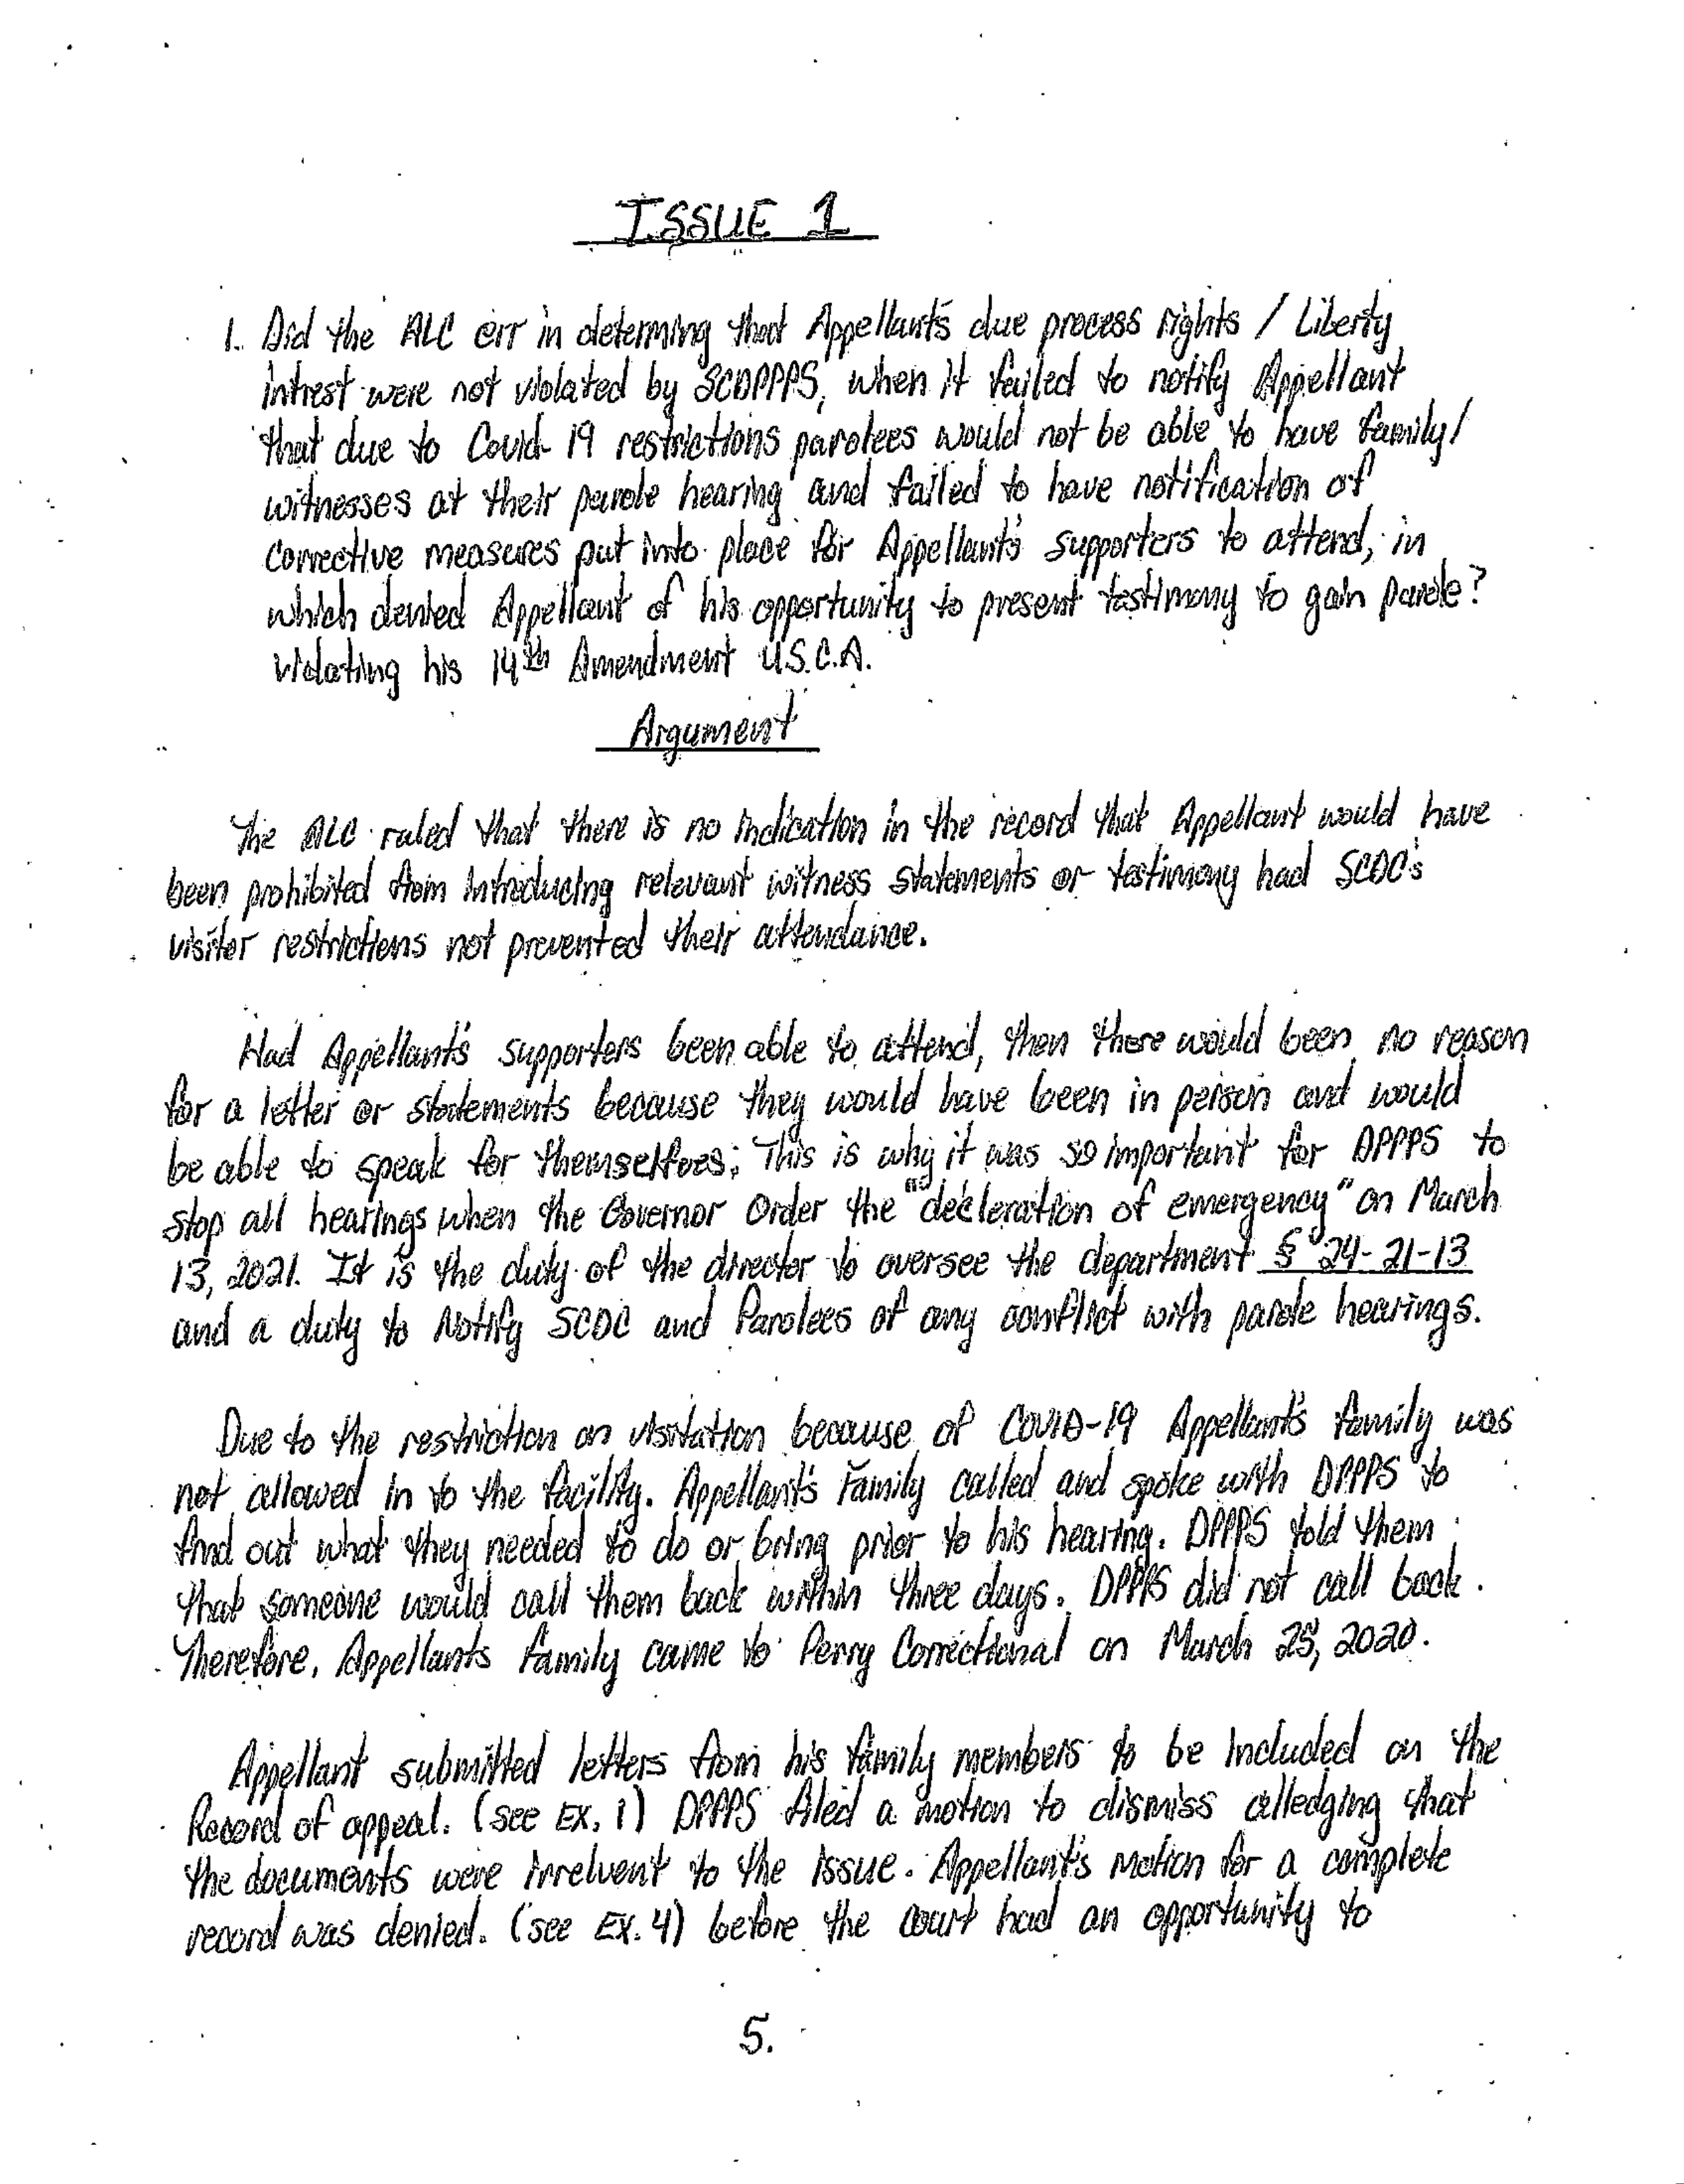 ISSUE 1
1. Did the ALC err in determing that Appellant's due process rights / Liberty
intrest were not violated by SCDPPPS, when it failed to notify Appellant
that due to Covid-19 restrictions parolees would not be able to have family/
witnesses at their parole hearing and failed to have notification of
corrective measures put into place for Appellant's supporters to attend, in
which denied Appellant of his opportunity to present testimony to gain parole?
Violating his 14th Amendment U.S.C.A.
Argument
The ALC ruled that there is no indication in the record that Appellant would have
been prohibited from introducing relevant witness statements or testimony had SCDC's
visitor restrictions not prevented their attendance.
Had Appellant's supporters been able to attend, then there would been no reason
for a letter or statements because they would have been in person and would
be able to speak for themselfves; This is why it was so important for DPPPS to
stop all hearings when the Governor Order the "declaration of emergency" on March
13, 2021. It is the duty of the director to oversee the department § 24-21-13
and a duty to Notify SCDC and Parolees of any conflict with parole hearings.
Due to the restriction on visitation because of COVID-19 Appellant's family was
not allowed in to the facility. Appellant's Family called and spoke with DPPPS to
find out what they needed to do or bring prior to his hearing. DPPPS told them
that someone would call them back within three days. DPPPS did not call back.
Therefore, Appellants family came to Perry Correctional on March 25, 2020.
Appellant submitted letters from his family members to be Included on the
Record of appeal. (see EX. 1) DPPPS filed a motion to dismiss alledging that
the documents were irrelvent to the issue. Appellant's Motion for a complete
record was denied. (see EX. 4) before the court had an opportunity to
5.